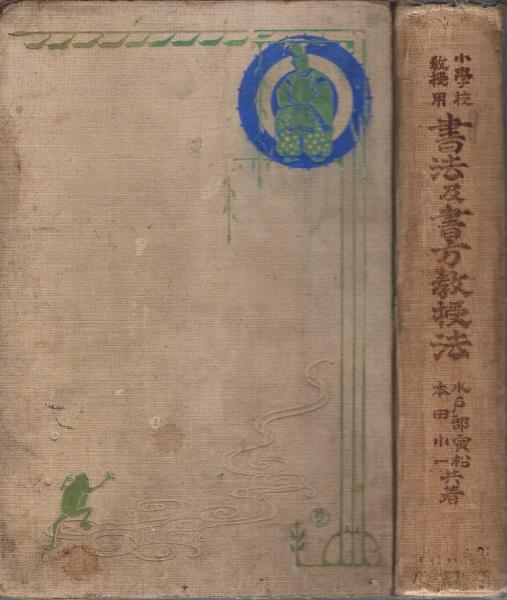 小學校
教授用
書法及書方教授法
水戸部寅松
本田小一
共著